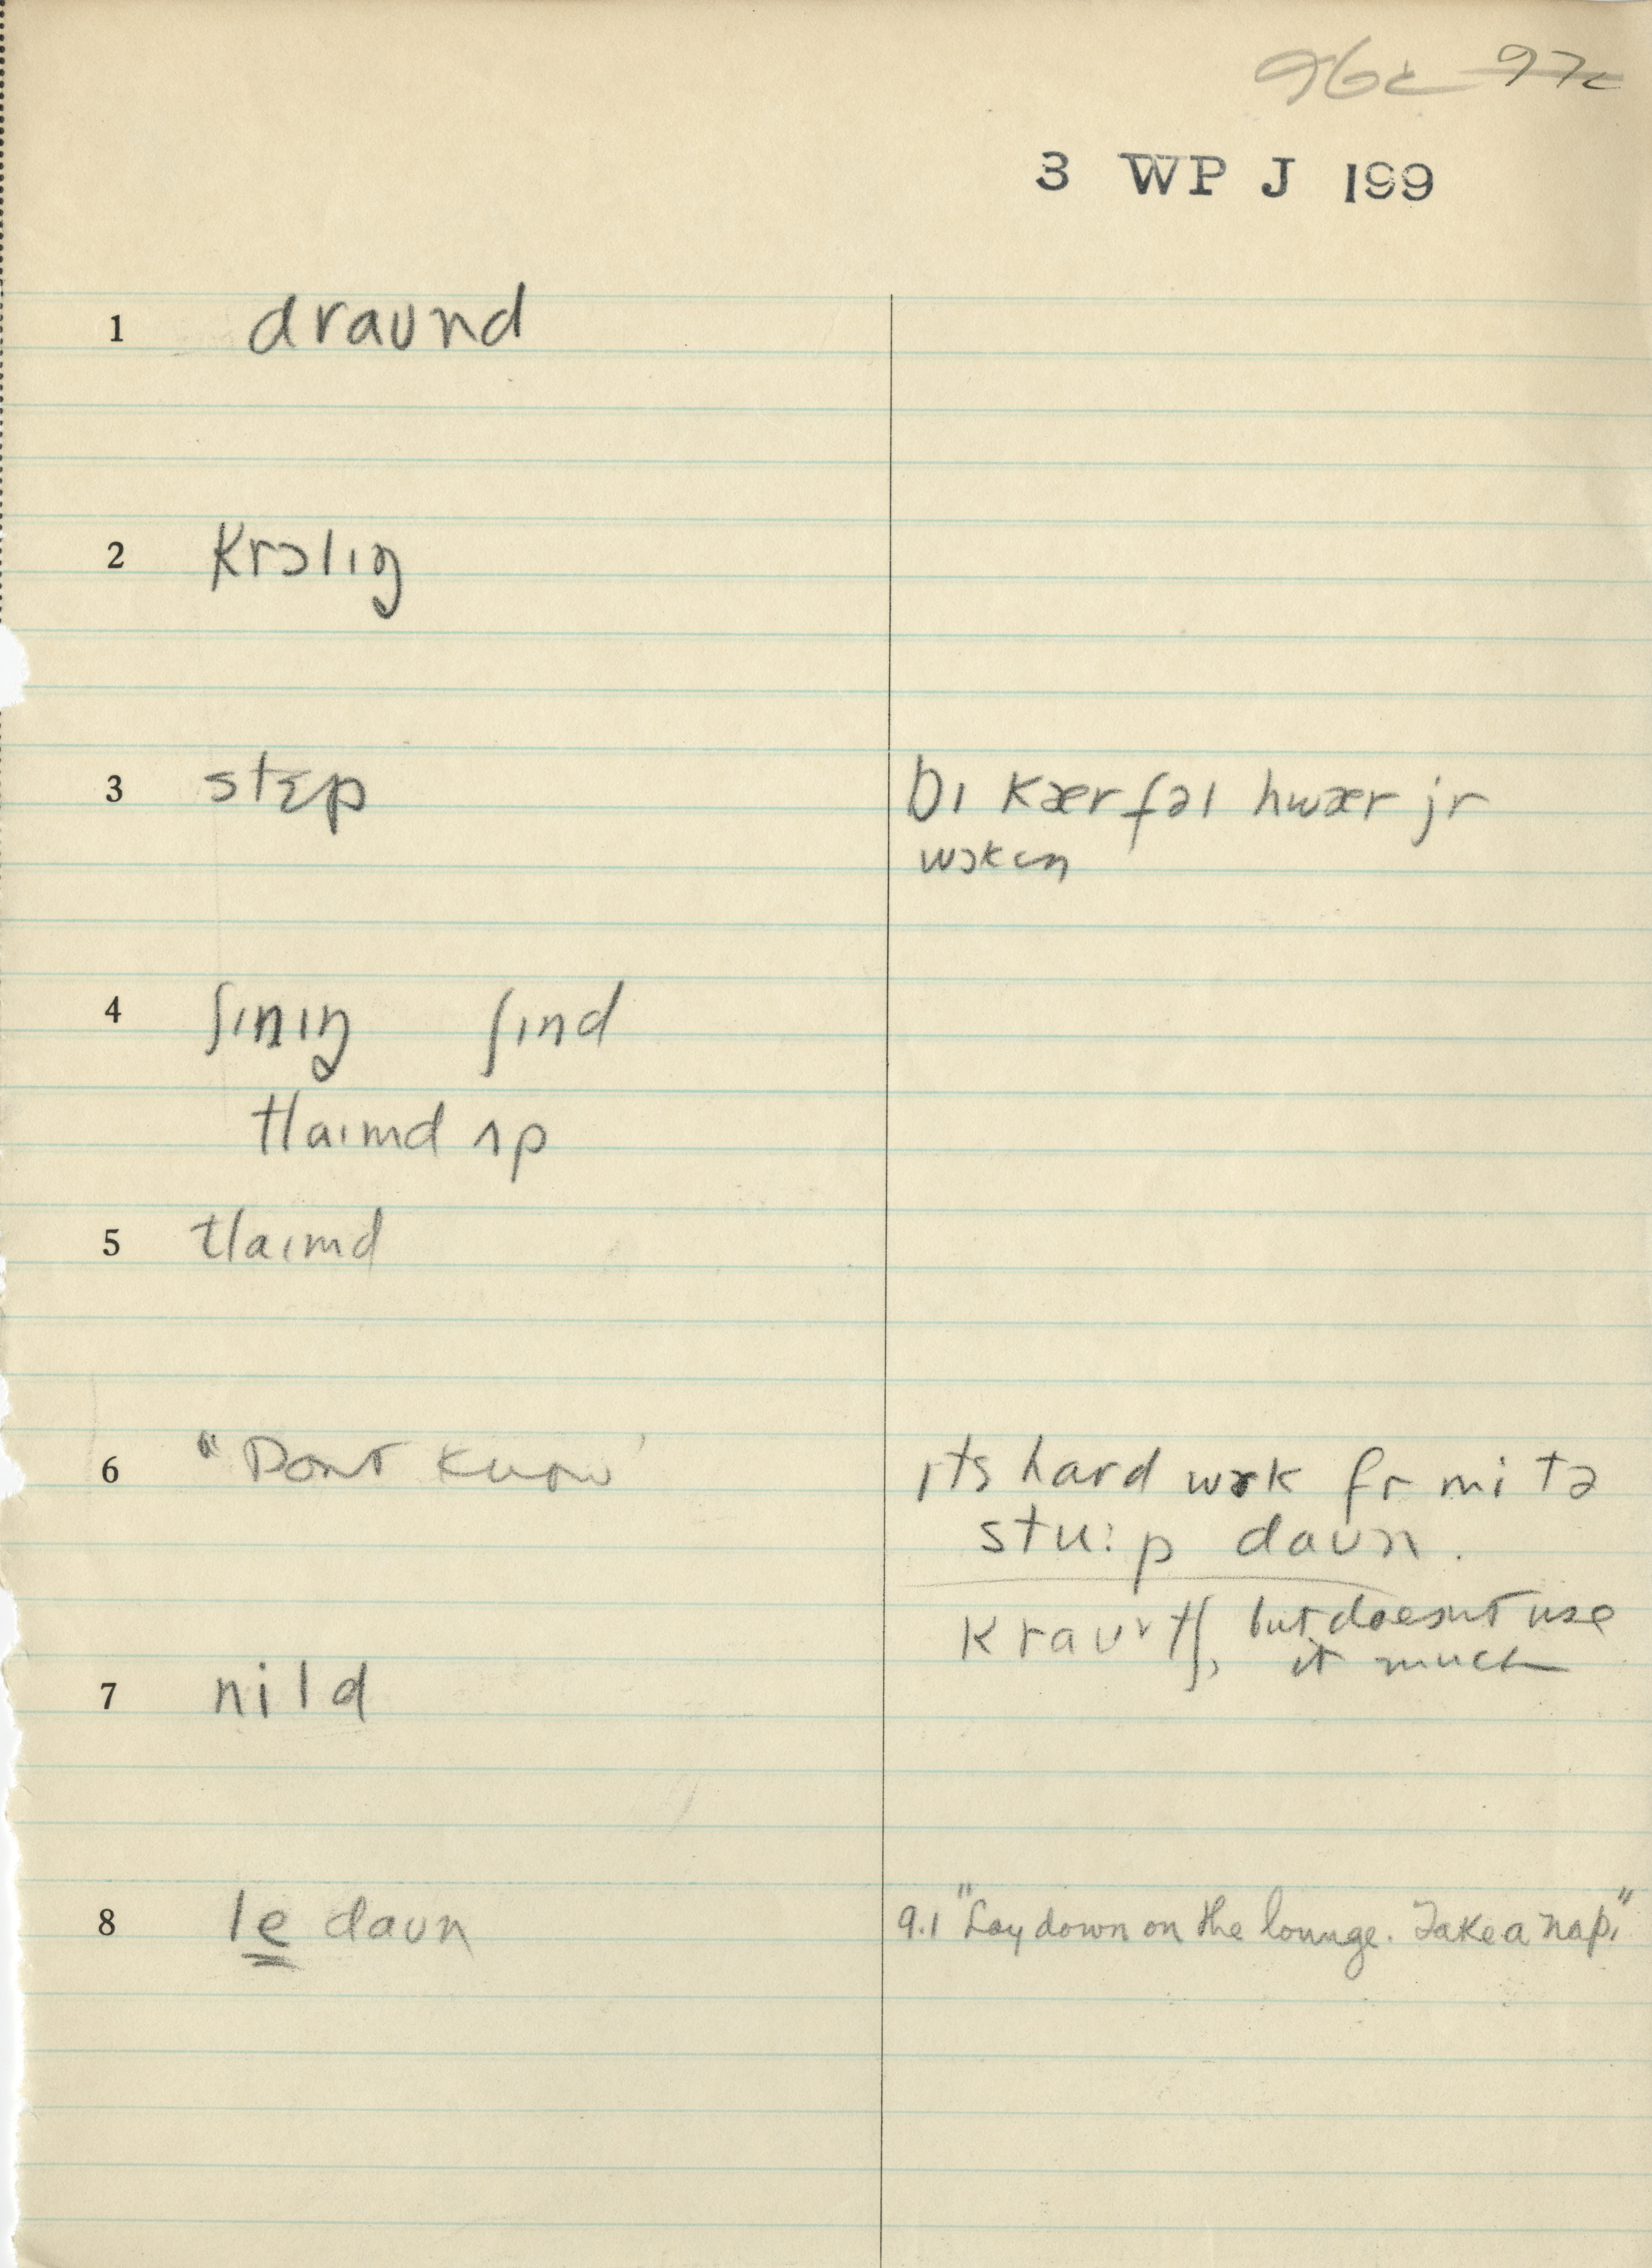 96c 97c
3 WP J 199
1 draʊnd
2 krɔlɪŋ
3 stɛp
bɪ kærfəl hwær jr
wɔkɪŋ
4 ʃɪnɪŋ ʃɪnd
tlaɪmd ʌp
5 tlaɪmd
6 "Dont know'
ɪts hard wɝk fr mi tə
stu:p daʊn.
kraʊtʃ, but doesnt use
it much
7 nild
8 le daʊn
9.1 "Lay down on the lounge. Take a nap."